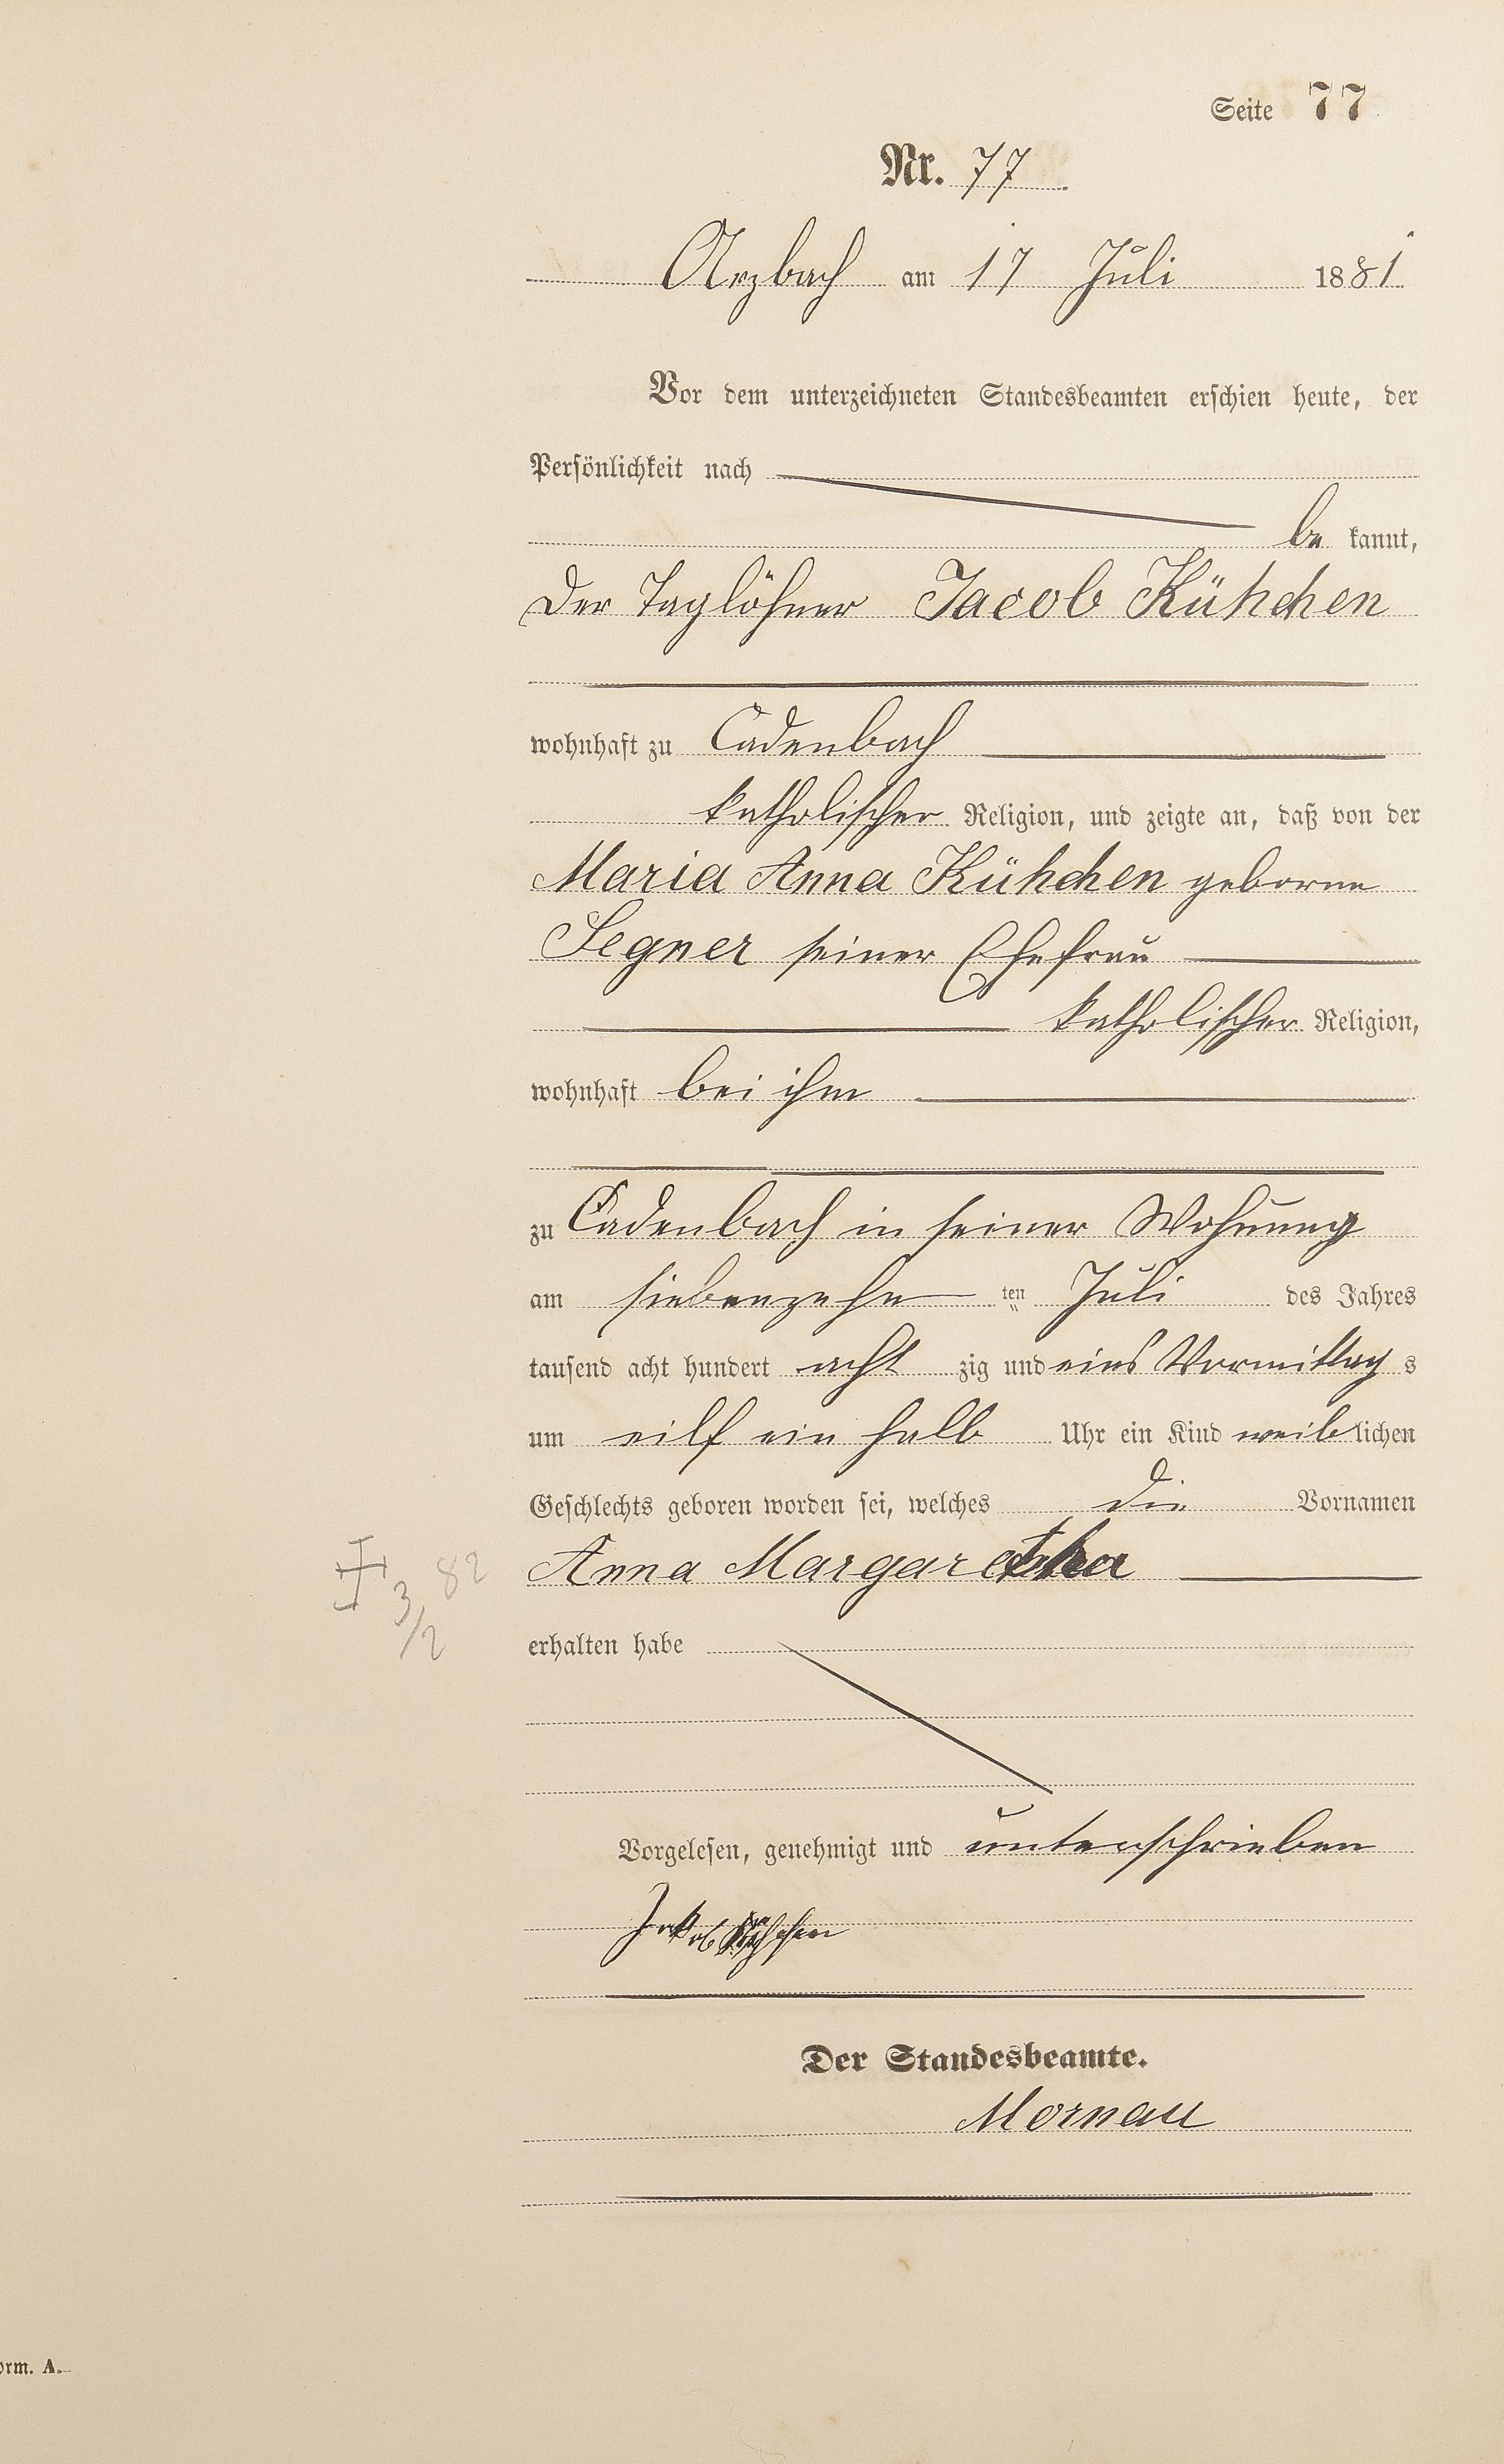 Seite 77
Nr. 77
Arzbach am 17 Juli 1881
Vor dem unterzeichneten Standesbeamten erschien heute, der
Persönlichkeit nach
be kannt,
der Taglöhner Jacob Kühchen
wohnhaft zu Cadenbach
katholischer Religion, und zeigte an, daß von der
Maria Anna Kühchen geborne
Segner seiner Ehefrau
katholischer Religion,
wohnhaft bei ihm
zu Cadenbach in seiner Wohnung
am siebenzehn ten Juli des Jahres
tausend acht hundert acht zig und eins Vormittag s
um eilf ein halb Uhr ein Kind weib lichen
Geschlechts geboren worden sei, welches die Vornamen
Anna Margaretha
3/2 82
erhalten habe
Vorgelesen, genehmigt und unterschrieben
Jakob Kühchen
Der Standesbeamte.
Mornau
orm. A.